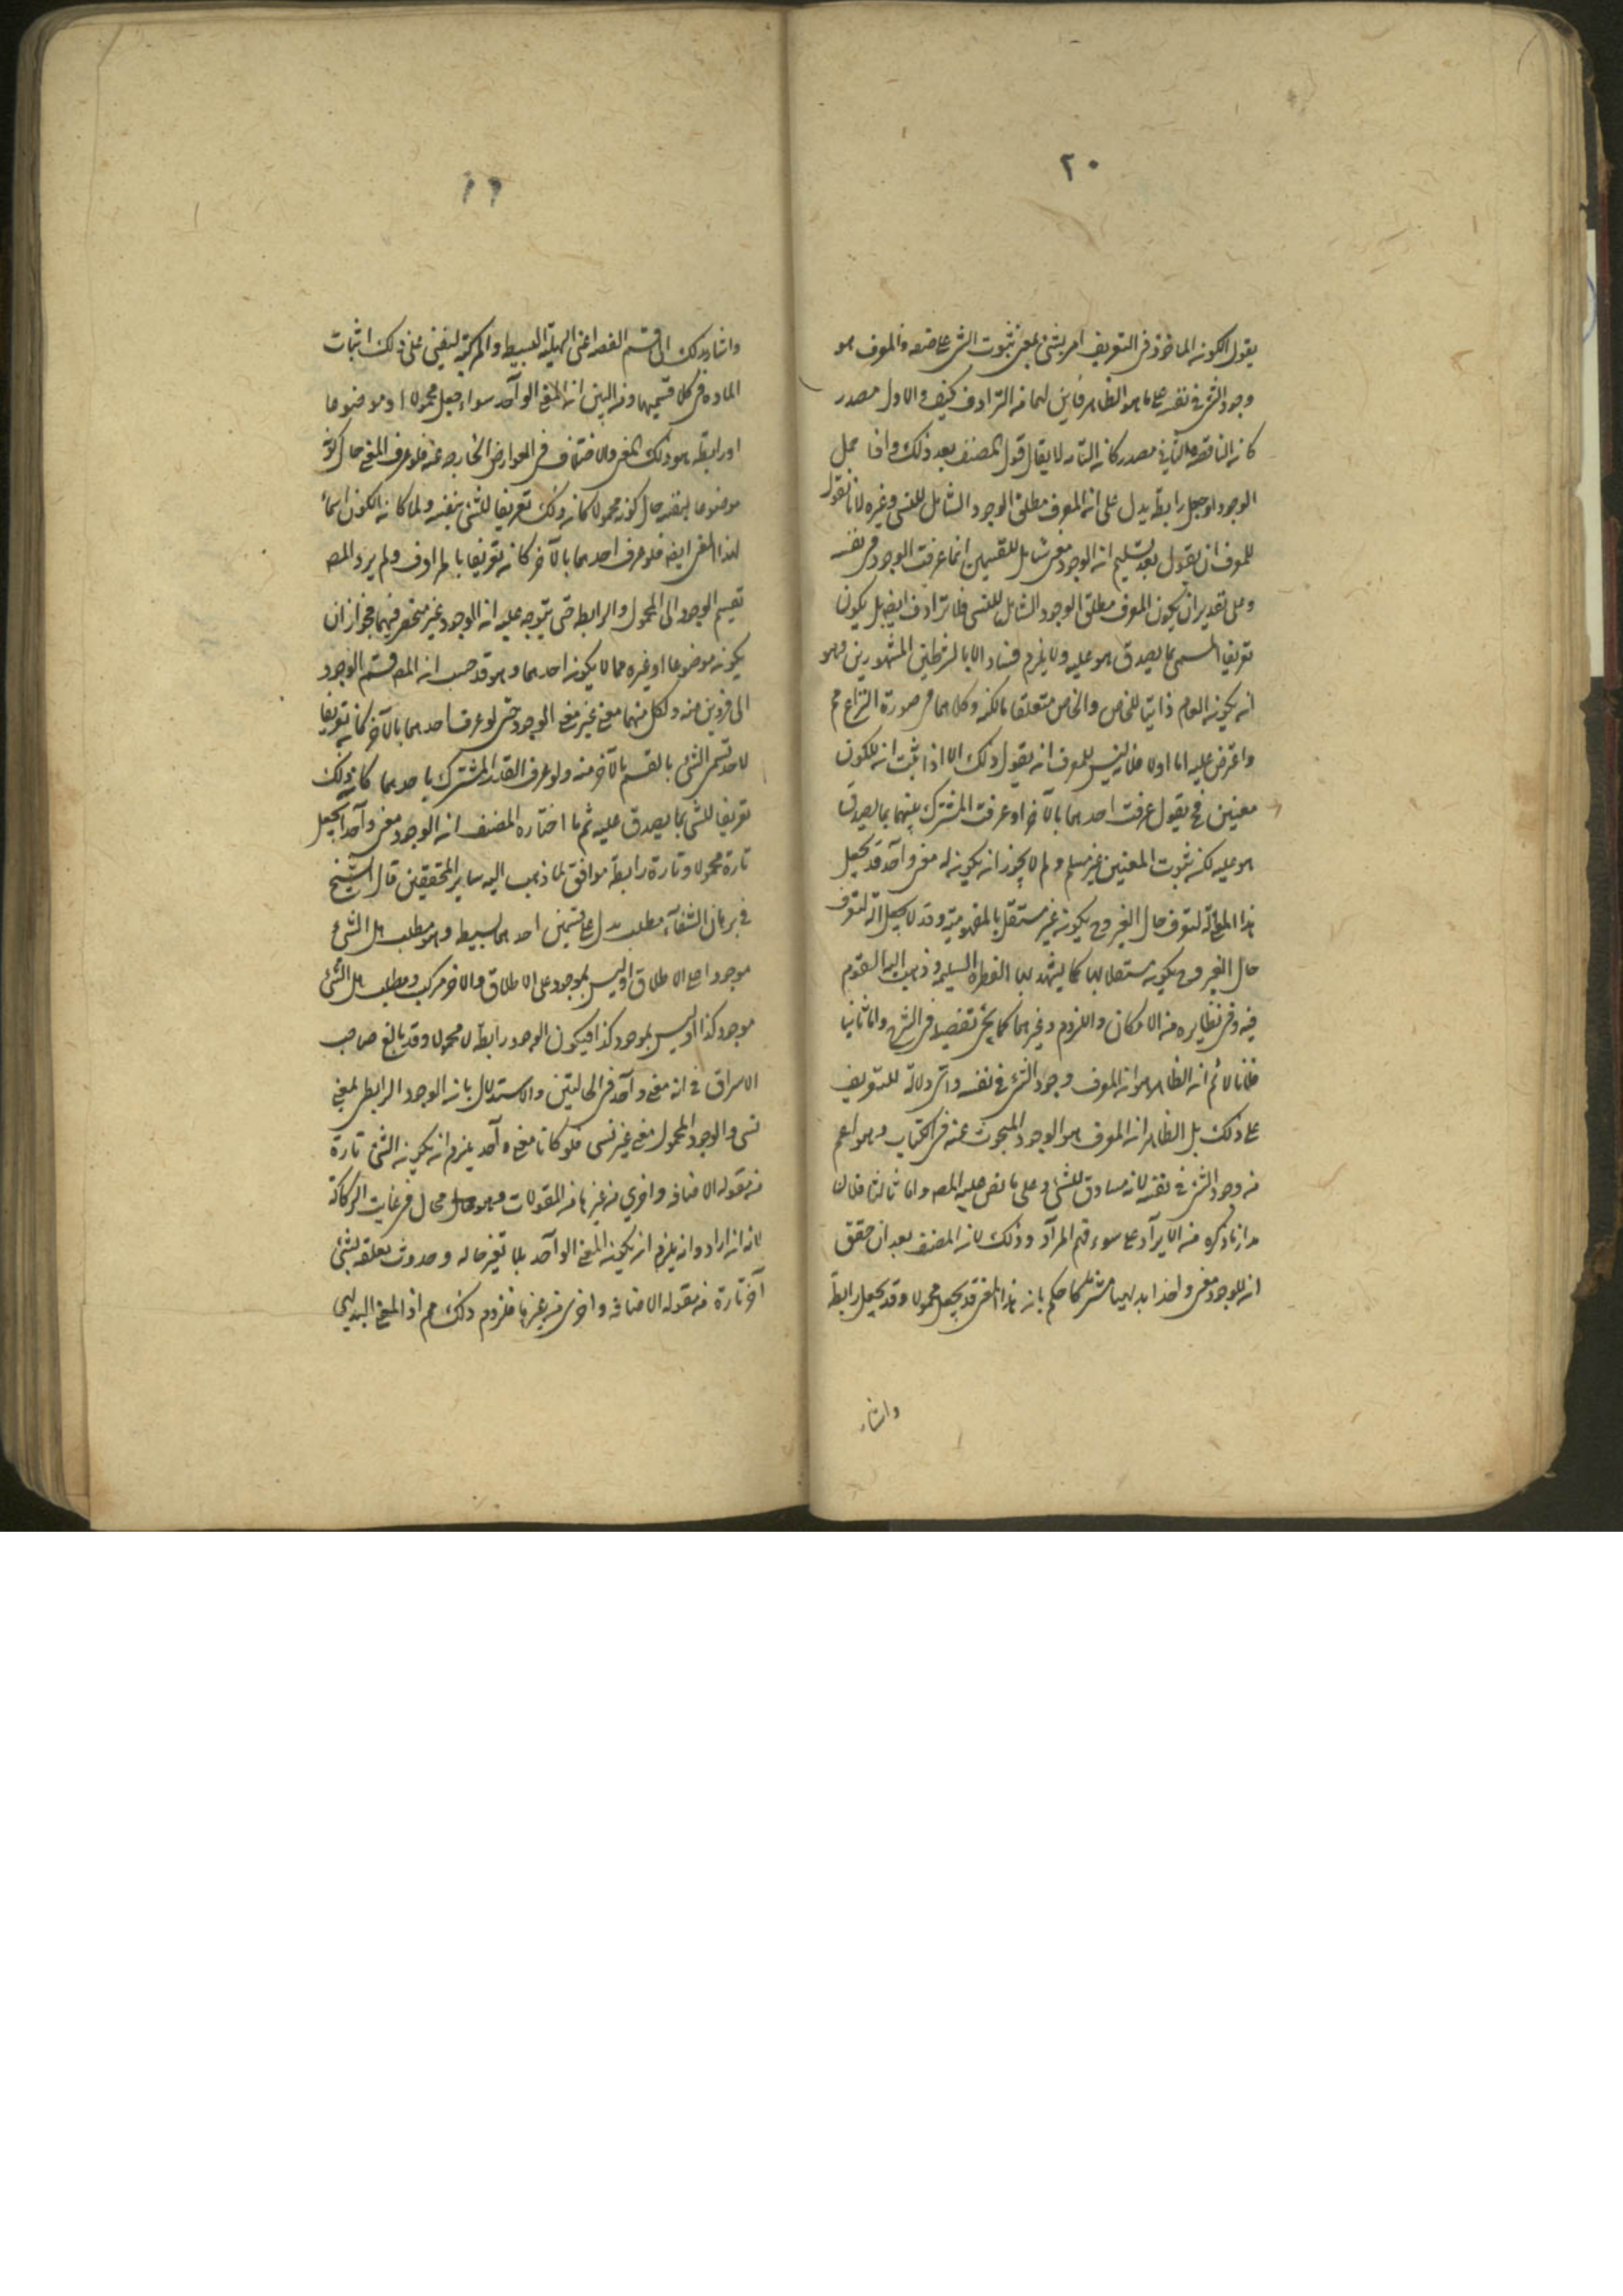 ٢٠
يقول الكون الماخوذ فى التعريف امر يثنى بمعنى ثبوت الشئ على صفه والمعرف هو
وجود الشئ فى نفسه على ما هو الظاهر فاين لهما من الترادف كيف والاول مصدر
كان الناقصه والثانى مصدر كان التامه لا يقال قول المصنف بعد ذلك واذا حمل
الوجود او جعل رابطة يدل على ان المعرف مطلق الوجود الشامل للنسبى وغيره لانا نقول
للمعرف ان يقول بعد تسليم ان الوجود معنى شامل للقسمين انما عرفت الوجود فى نفسه
وعلى تقدير ان يكون المعرف مطلق الوجود الشامل للنسبى فلا ترادف ايضا بل يكون
تعريفا لمسمى بما يصدق هو عليه ولا يلزم فساد الا بالشرطين المشهورين وهو
ان يكون العام ذاتيا للخاص والخاص متعلقا بالكنه وكلاهما فى صورة النزاع مم
واعترض عليه اما اولا فلانه ليس للمعرف ان يقول ذلك الا اذا ثبت ان للكون
معنيين فح يقول عرفت احدهما بالآخر او عرفت المشترك بينهما بما يصدق
هو عليه لكن ثبوت المعنيين غير مسلم ولم لا يجوز ان يكون له معنى واحد قد يجعل
هذا المعنى آلة لتعرف حال الغير وح يكون غير مستقل بالمفهومية وقد لا يجعل آلة لتعرف
حال الغير وح يكون مستقلا بها كما يشهد بها الفطرة السليمه وذهب اليه القوم
فيه وفى نظايره من الامكان واللزوم وغيرهما كما يجئ تفصيله فى الشرح واما ثانيا
فلانا لا نم ان الظاهر هو ان المعرف وجود الشئ فى نفسه واى دلالة للتعريف
على ذلك بل الظاهر ان المعرف هو الوجود المبحوث عنه فى الكتاب وهو اعم
من وجود الشئ فى نفسه لانه مساوق للشئ وعلى ما نص عليه المصه واما ثالثا فلان
مدار ما ذكره من الايراد على سوء فهم المراد وذلك لان المصنف بعد ان حقق
ان للوجود معنى واحدا بديهيا مشتركا حكم بان هذا المعنى قد يجعل محمولا وقد يجعل رابطة
واشار
واشار بذلك الى قسم القضه اعنى الهلية البسيط والمركبة ليبتنى على ذلك اثبات
الماده فى كلا قسميها ومن البين ان المعنى الواحد سواء جعل محمولا او موضوعا
او رابطة هو ذلك المعنى والاختلاف فى العوارض الخارجه عنه فلو عرف المعنى حال كونه
موضوعا بنفسه حال كونه محمولا كان ذلك تعريفا للشئ بنفسه ولما كان الكون اسما
لهذا المعنى ايضه فلو عرف احدهما بالآخر كان تعريفا بالمرادف ولم يرد المصه
تقسيم الوجود الى المحمول والرابطه حتى يتوجه عليه ان الوجود غير منحصر فيهما بجواز ان
يكون موضوعا او غيره مما لا يكون احدهما وهو قد حسب ان المصه قسم الوجود
الى فردين منه ولكل منهما معنى غير معنى الوجود حتى لو عرف احدهما بالآخر كان تعريفا
لاحد قسمى الشئ بالقسم الآخر منه ولو عرف القدر المشترك باحدهما كان ذلك
تعريفا للشئ بما يصدق عليه ثم ما اختاره المصنف ان الوجود معنى واحد يجعل
تارة محمولا وتارة رابطة موافق لما ذهب اليه ساير المحققين قال الشيخ
فى برهان الشفآء مطلب هل على قسمين احدهما بسيط وهو مطلب هل الشئ
موجود على الاطلاق او ليس بموجود على الاطلاق والآخر مركب ومطلب هل الشئ
موجود كذا او ليس بموجود كذا فيكون الوجود رابطة لا محمولا وقد بالغ صاحب
الاسراق فى انه معنى واحد فى الحالتين والاستدلال بان الوجود الرابطى بمعنى
نسبى والوجود المحمول معنى غير نسبى فلو كانا معنى واحد يلزم ان يكون الشئ تارة
من مقوله الاضافه واخرى من غيرها من المقولات وهو محال فى غايت الركاكة
لانه ان اراد وانه يلزم ان يكون المعنى الواحد بلا تغير حاله وحدوث تعلقه بشئ
آخر تارة من مقوله الاضافه واخرى من غيرها فلزوم ذلك مم اذ المعنى البديهى